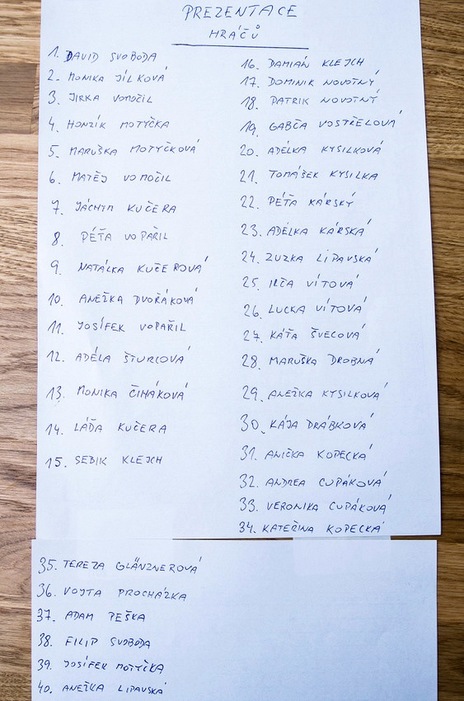 PREZENTACE
HRÁČŮ
1. DAVID SVOBODA
2. MONIKA JÍLKOVÁ
3. JIRKA VOMOČIL
4. HONZÍK MOTYČKA
5. MARUŠKA MOTYČKOVÁ
6. MATĚJ VOMOČIL
7. JÁCHYM KUČERA
8. PÉŤA VOPAŘIL
9. NATÁLKA KUČEROVÁ
10. ANEŽKA DVOŘÁKOVÁ
11. JOSÍFEK VOPAŘIL
12. ADÉLA ŠTURCOVÁ
13. MONIKA ČIHÁKOVÁ
14. LÁĎA KUČERA
15. SEBIK KLEJCH
16. DAMIÁN KLEJCH
17. DOMINIK NOVOTNÝ
18. PATRIK NOVOTNÝ
19. GABČA VOSTŘELOVÁ
20. ADÉLKA KYSILKOVÁ
21. TOMÁŠEK KYSILKA
22. PÉŤA KÁRSKÝ
23. ADÉLKA KÁRSKÁ
24. ZUZKA LIPAVSKÁ
25. IRČA VÍTOVÁ
26. LUCKA VÍTOVÁ
27. KÁŤA ŠVECOVÁ
28. MARUŠKA DROBNÁ
29. ANEŽKA KYSILKOVÁ
30. KÁJA DRÁBKOVÁ
31. ANIČKA KOPECKÁ
32. ANDREA CUPÁKOVÁ
33. VERONIKA CUPÁKOVÁ
34. KATEŘINA KOPECKÁ
35. TEREZA GLÄNZNEROVÁ
36. VOJTA PROCHÁZKA
37. ADAM PEŠKA
38. FILIP SVOBODA
39. JOSÍFEK MOTYČKA
40. ANEŽKA LIPAVSKÁ